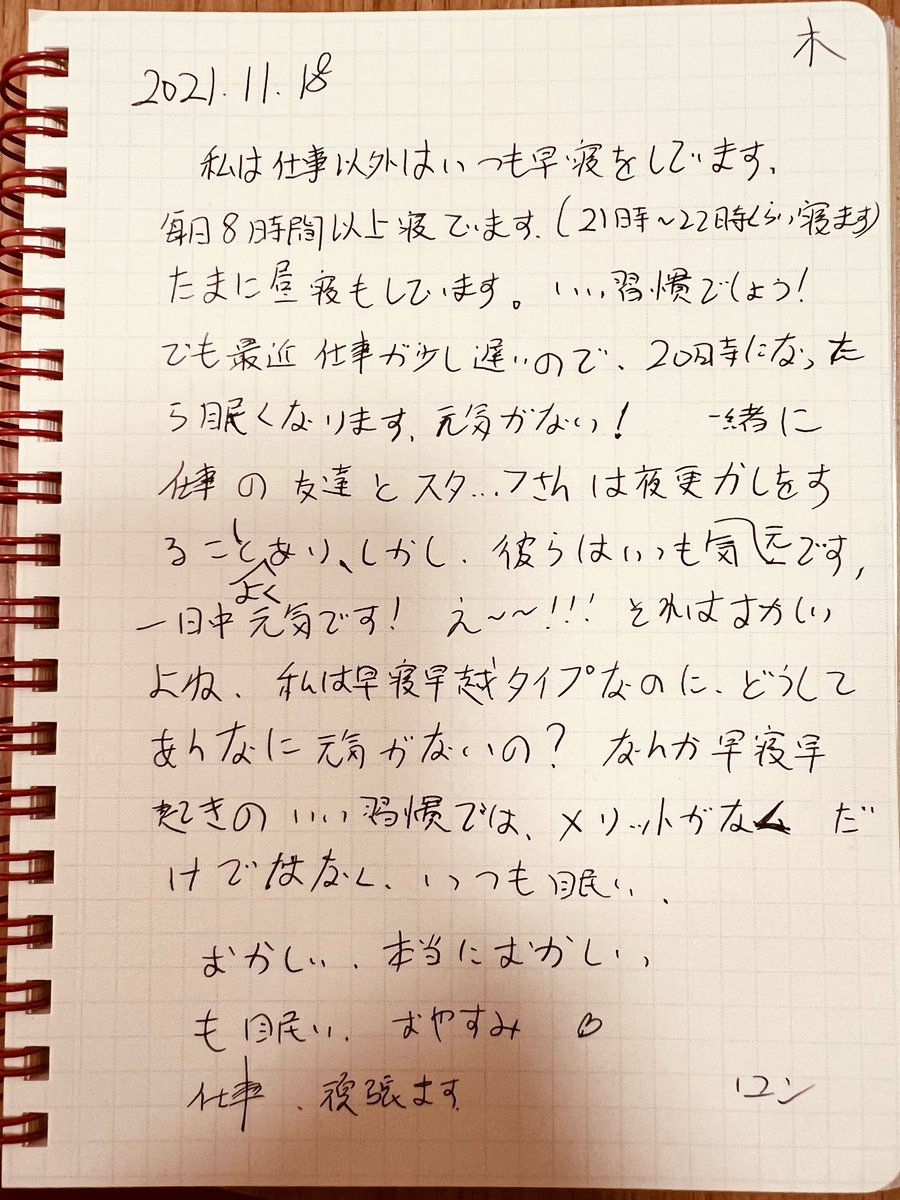 木
2021.11.18
私は仕事以外はいつも早寝をしています.
毎日8時間以上寝ています.(21時〜22時くらい寝ます)
たまに昼寝もしています。いい習慣でしょう!
でも最近仕事が少し遅いので、20時になった
ら眠くなります、元気がない! 一緒に
仕事の友達とスタッフさんは夜更かしをす
ることよくあり、しかし、彼らはいつも元気です,
一日中元気です! え〜〜!!! それはおかしい
よね、私は早寝早越タイプなのに、どうして
あんなに元気がないの? なんか早寝早
起きのいい習慣では、メリットがなくだ
けではなく、いつも眠い、
おかしい、本当におかしい、
も眠い、おやすみ
仕事、頑張ます
ワン